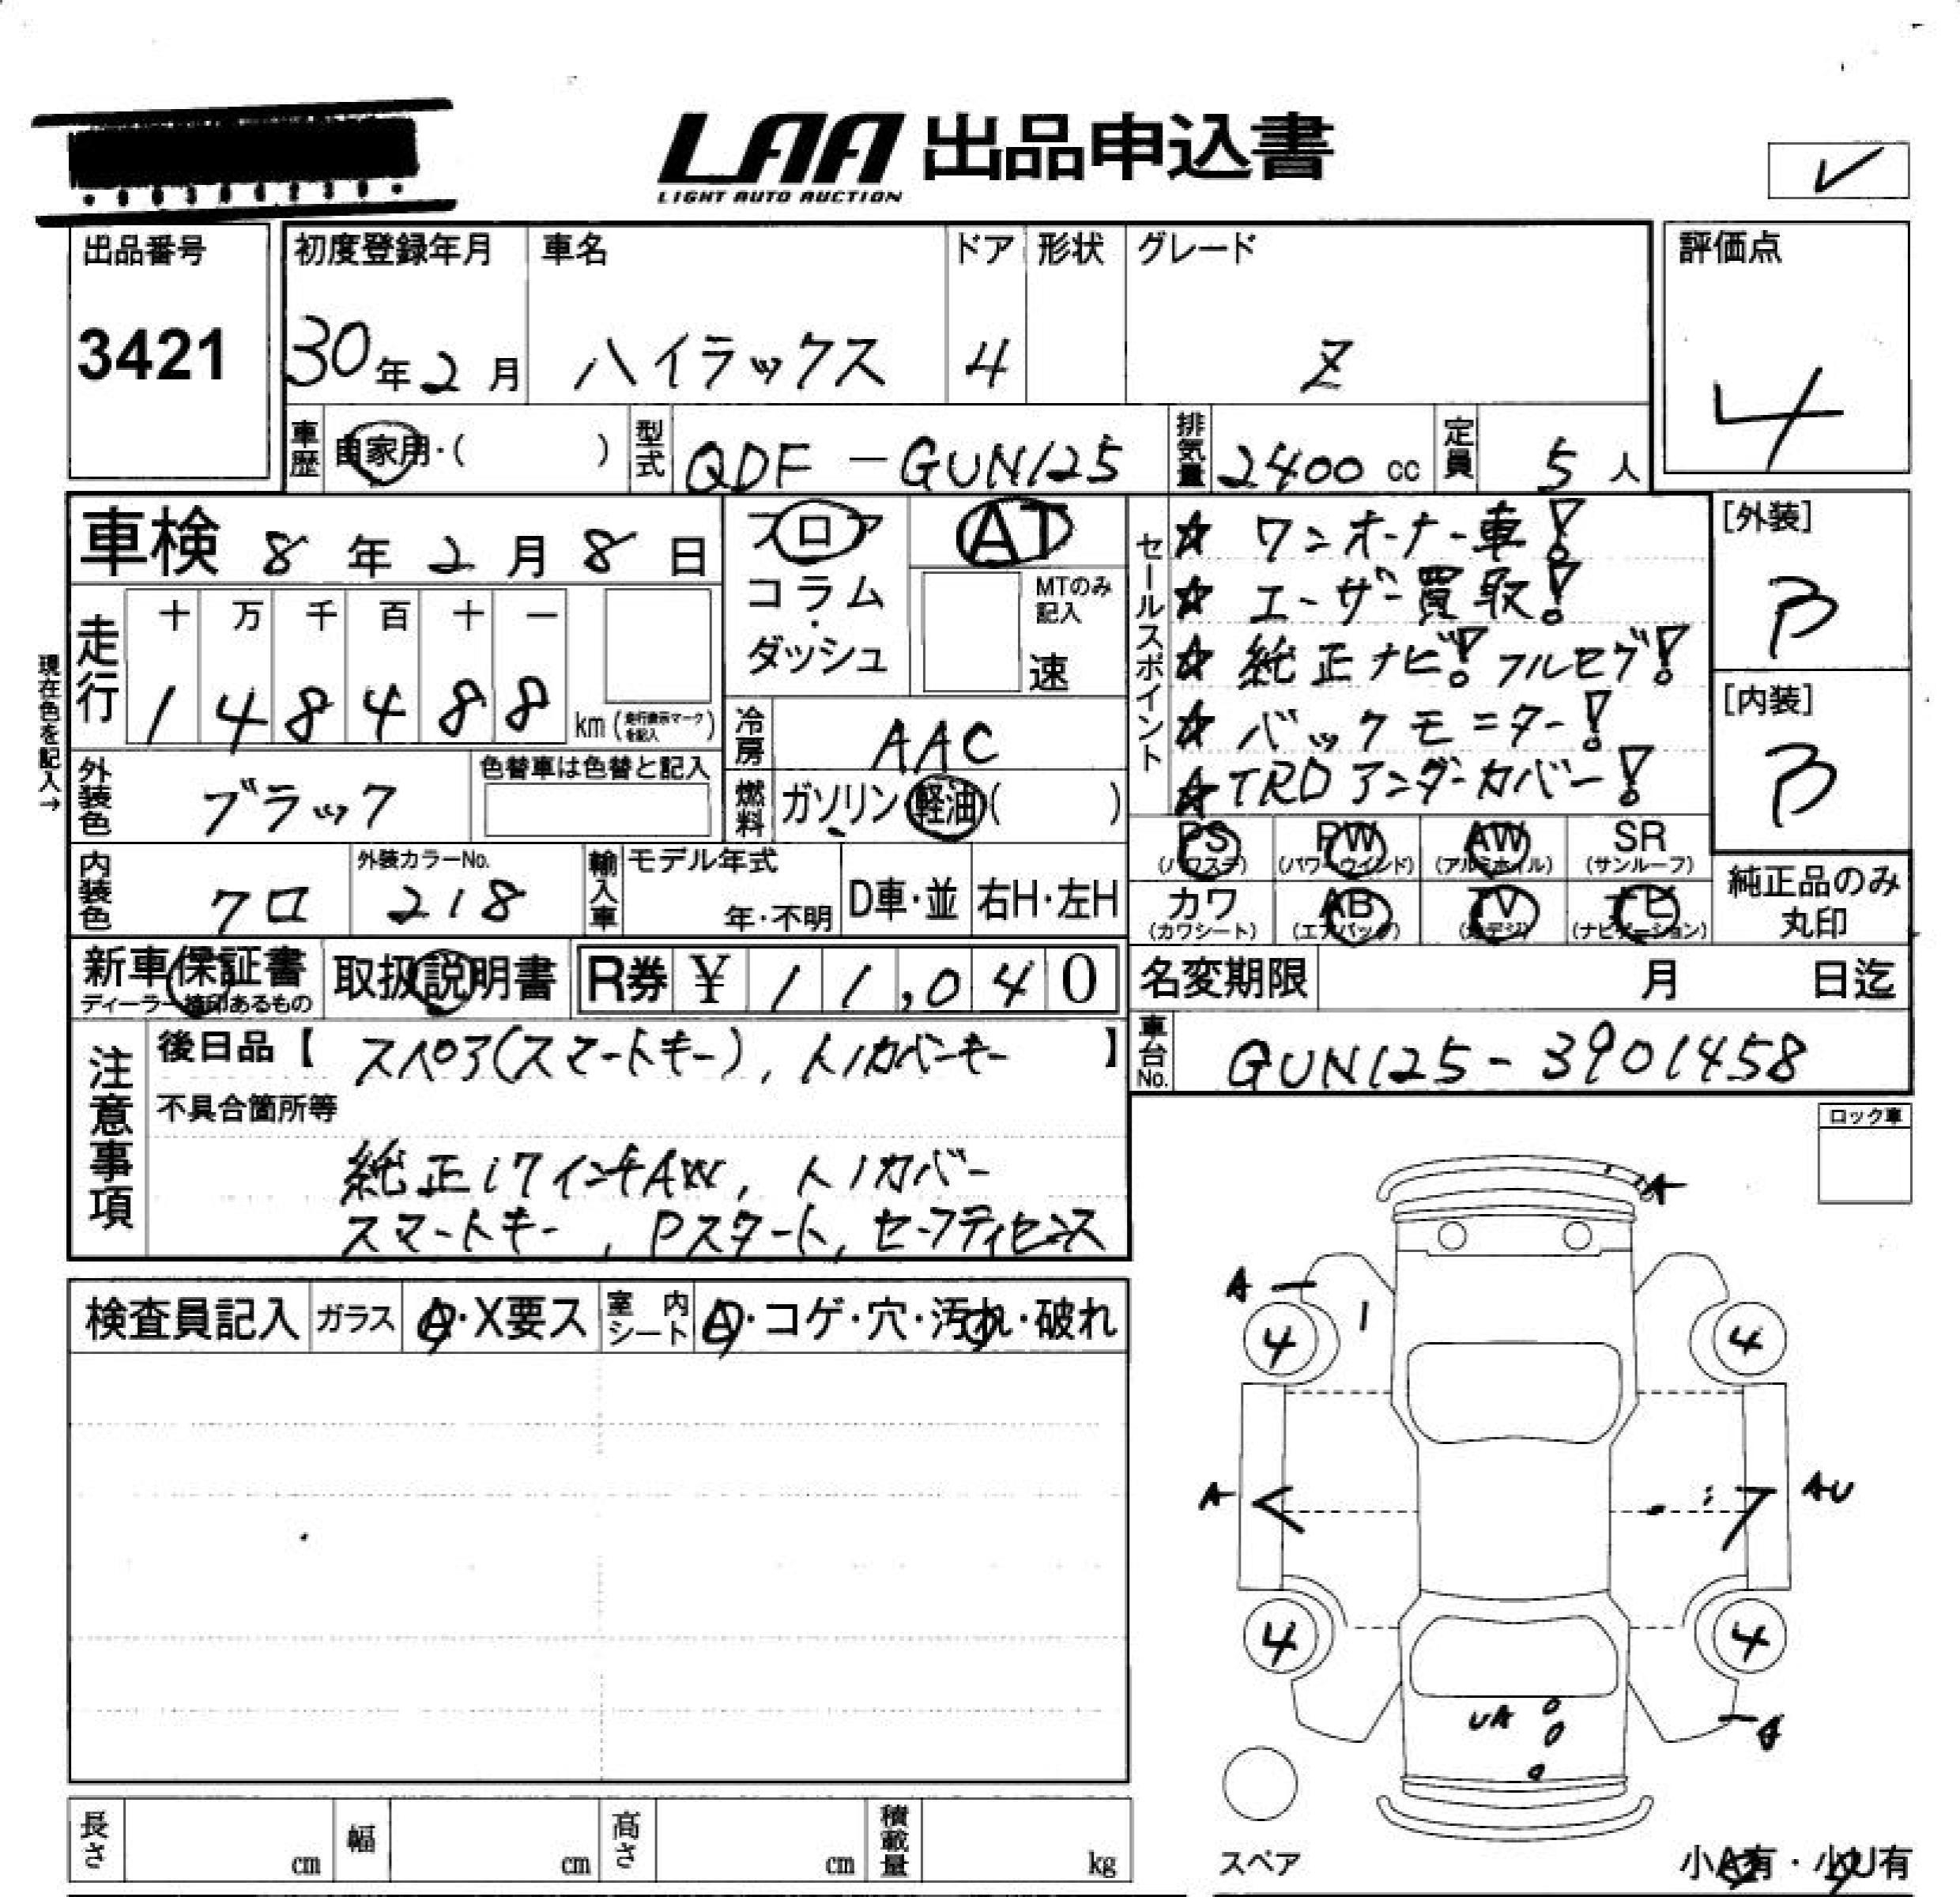 LAA 出品申込書
LIGHT AUTO AUCTION
✓
出品番号
3421
初度登録年月 車名 ドア 形状 グレード
30年2月 ハイラックス 4 Z
評価点
4
車歴 自家用・( ) 型式 QDF-GUN125 排気量 2400cc 定員 5人
車検 8年2月8日
フロア
コラム
・
ダッシュ
AT
MTのみ
記入
速
セールスポイント
☆ ワンオーナー車!
☆ ユーザー買取!
☆ 純正ナビ! フルセグ!
☆ バックモニター!
☆ TRDアンダーカバー!
[外装]
B
[内装]
B
現在色を記入→
走行
十 万 千 百 十 一
1 4 8 4 8 8 km (走行表示マークを記入)
冷房 AAC
燃料 ガソリン・軽油( )
外装色 ブラック
色替車は色替と記入
内装色 クロ
外装カラーNo.
218
輸入車 モデル年式
年・不明
D車・並 右H・左H
PS (パワステ) PW (パワーウインド) AW (アルミホイル) SR (サンルーフ)
カワ (カワシート) AB (エアバッグ) TV (地デジ) ナビ (ナビゲーション)
純正品のみ
丸印
新車保証書
ディーラー捺印あるもの
取扱説明書
R券 ¥ 11,040
名変期限 月 日迄
車台No. GUN125-3901458
注意事項
後日品【 スペア(スマートキー), トノカバーキー 】
不具合箇所等
純正17インチAW, トノカバー
スマートキー, Pスタート, セーフティセンス
ロック車
検査員記入 ガラス A・X要ス 室内シート A・コゲ・穴・汚れ・破れ
A
A
4 4
A AU
4 4
UA
スペア
小A有・小U有
長さ cm 幅 cm 高さ cm 積載量 kg